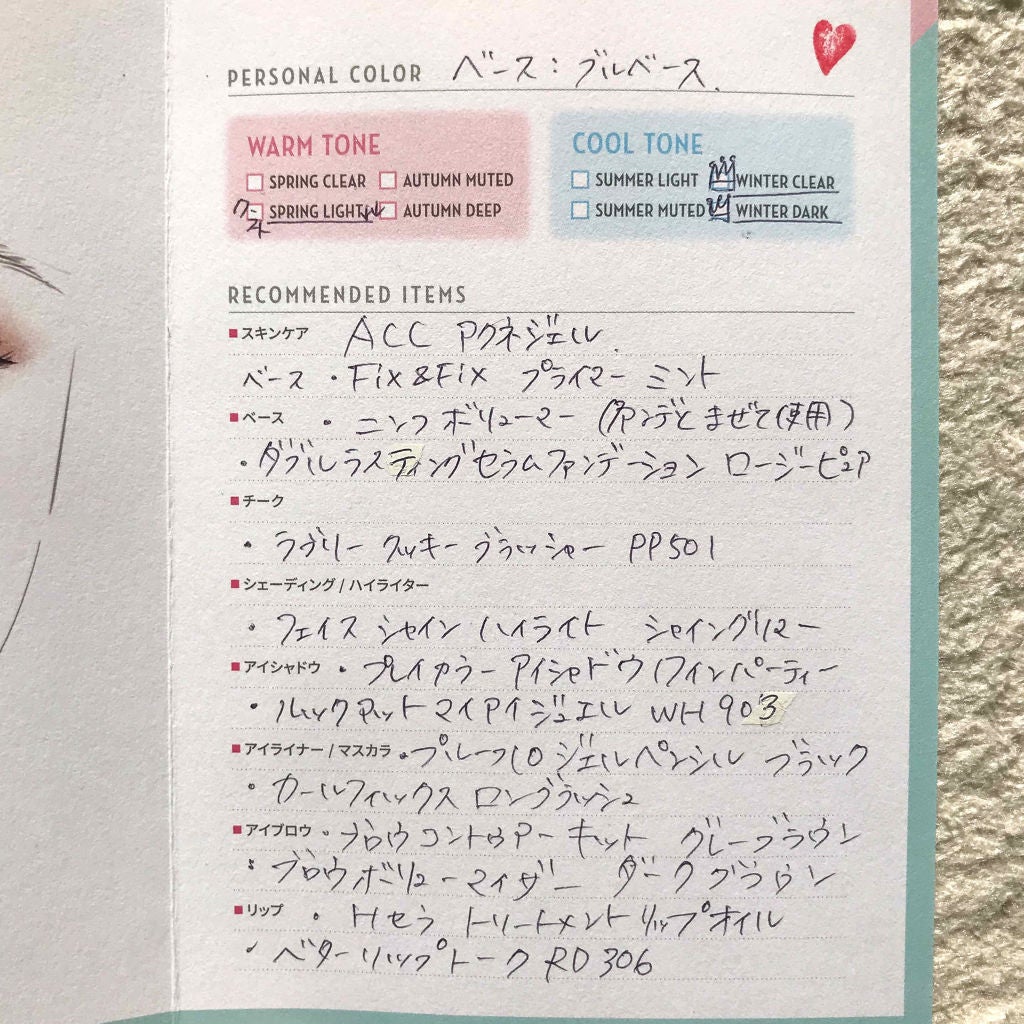 PERSONAL COLOR ベース:ブルベース.
WARM TONE
SPRING CLEAR AUTUMN MUTED
SPRING LIGHT AUTUMN DEEP
COOL TONE
SUMMER LIGHT WINTER CLEAR
SUMMER MUTED WINTER DARK
RECOMMENDED ITEMS
■スキンケア ACC アクネジェル.
ベース ・Fix&Fix プライマー ミント
■ベース ・ニンフ ボリューマー (ファンデとまぜて使用)
・ダブルラスティングセラムファンデーション ロージーピュア
■チーク
・ラブリー クッキー ブラッシャー PP501
■シェーディング/ハイライター
・フェイス シャイン ハイライト シャイングリマー
■アイシャドウ ・プレイカラーアイシャドウ ワインパーティー
・ルックアットマイアイジュエル WH903
■アイライナー/マスカラ ・プルーフ10 ジェルペンシル ブラック
・カールフィックス ロングラッシュ
■アイブロウ ・ブロウコントゥアーキット グレーブラウン
・ブロウボリューマイザー ダークブラウン
■リップ ・Hセラ トリートメントリップオイル
・ベターリップトーク RD306